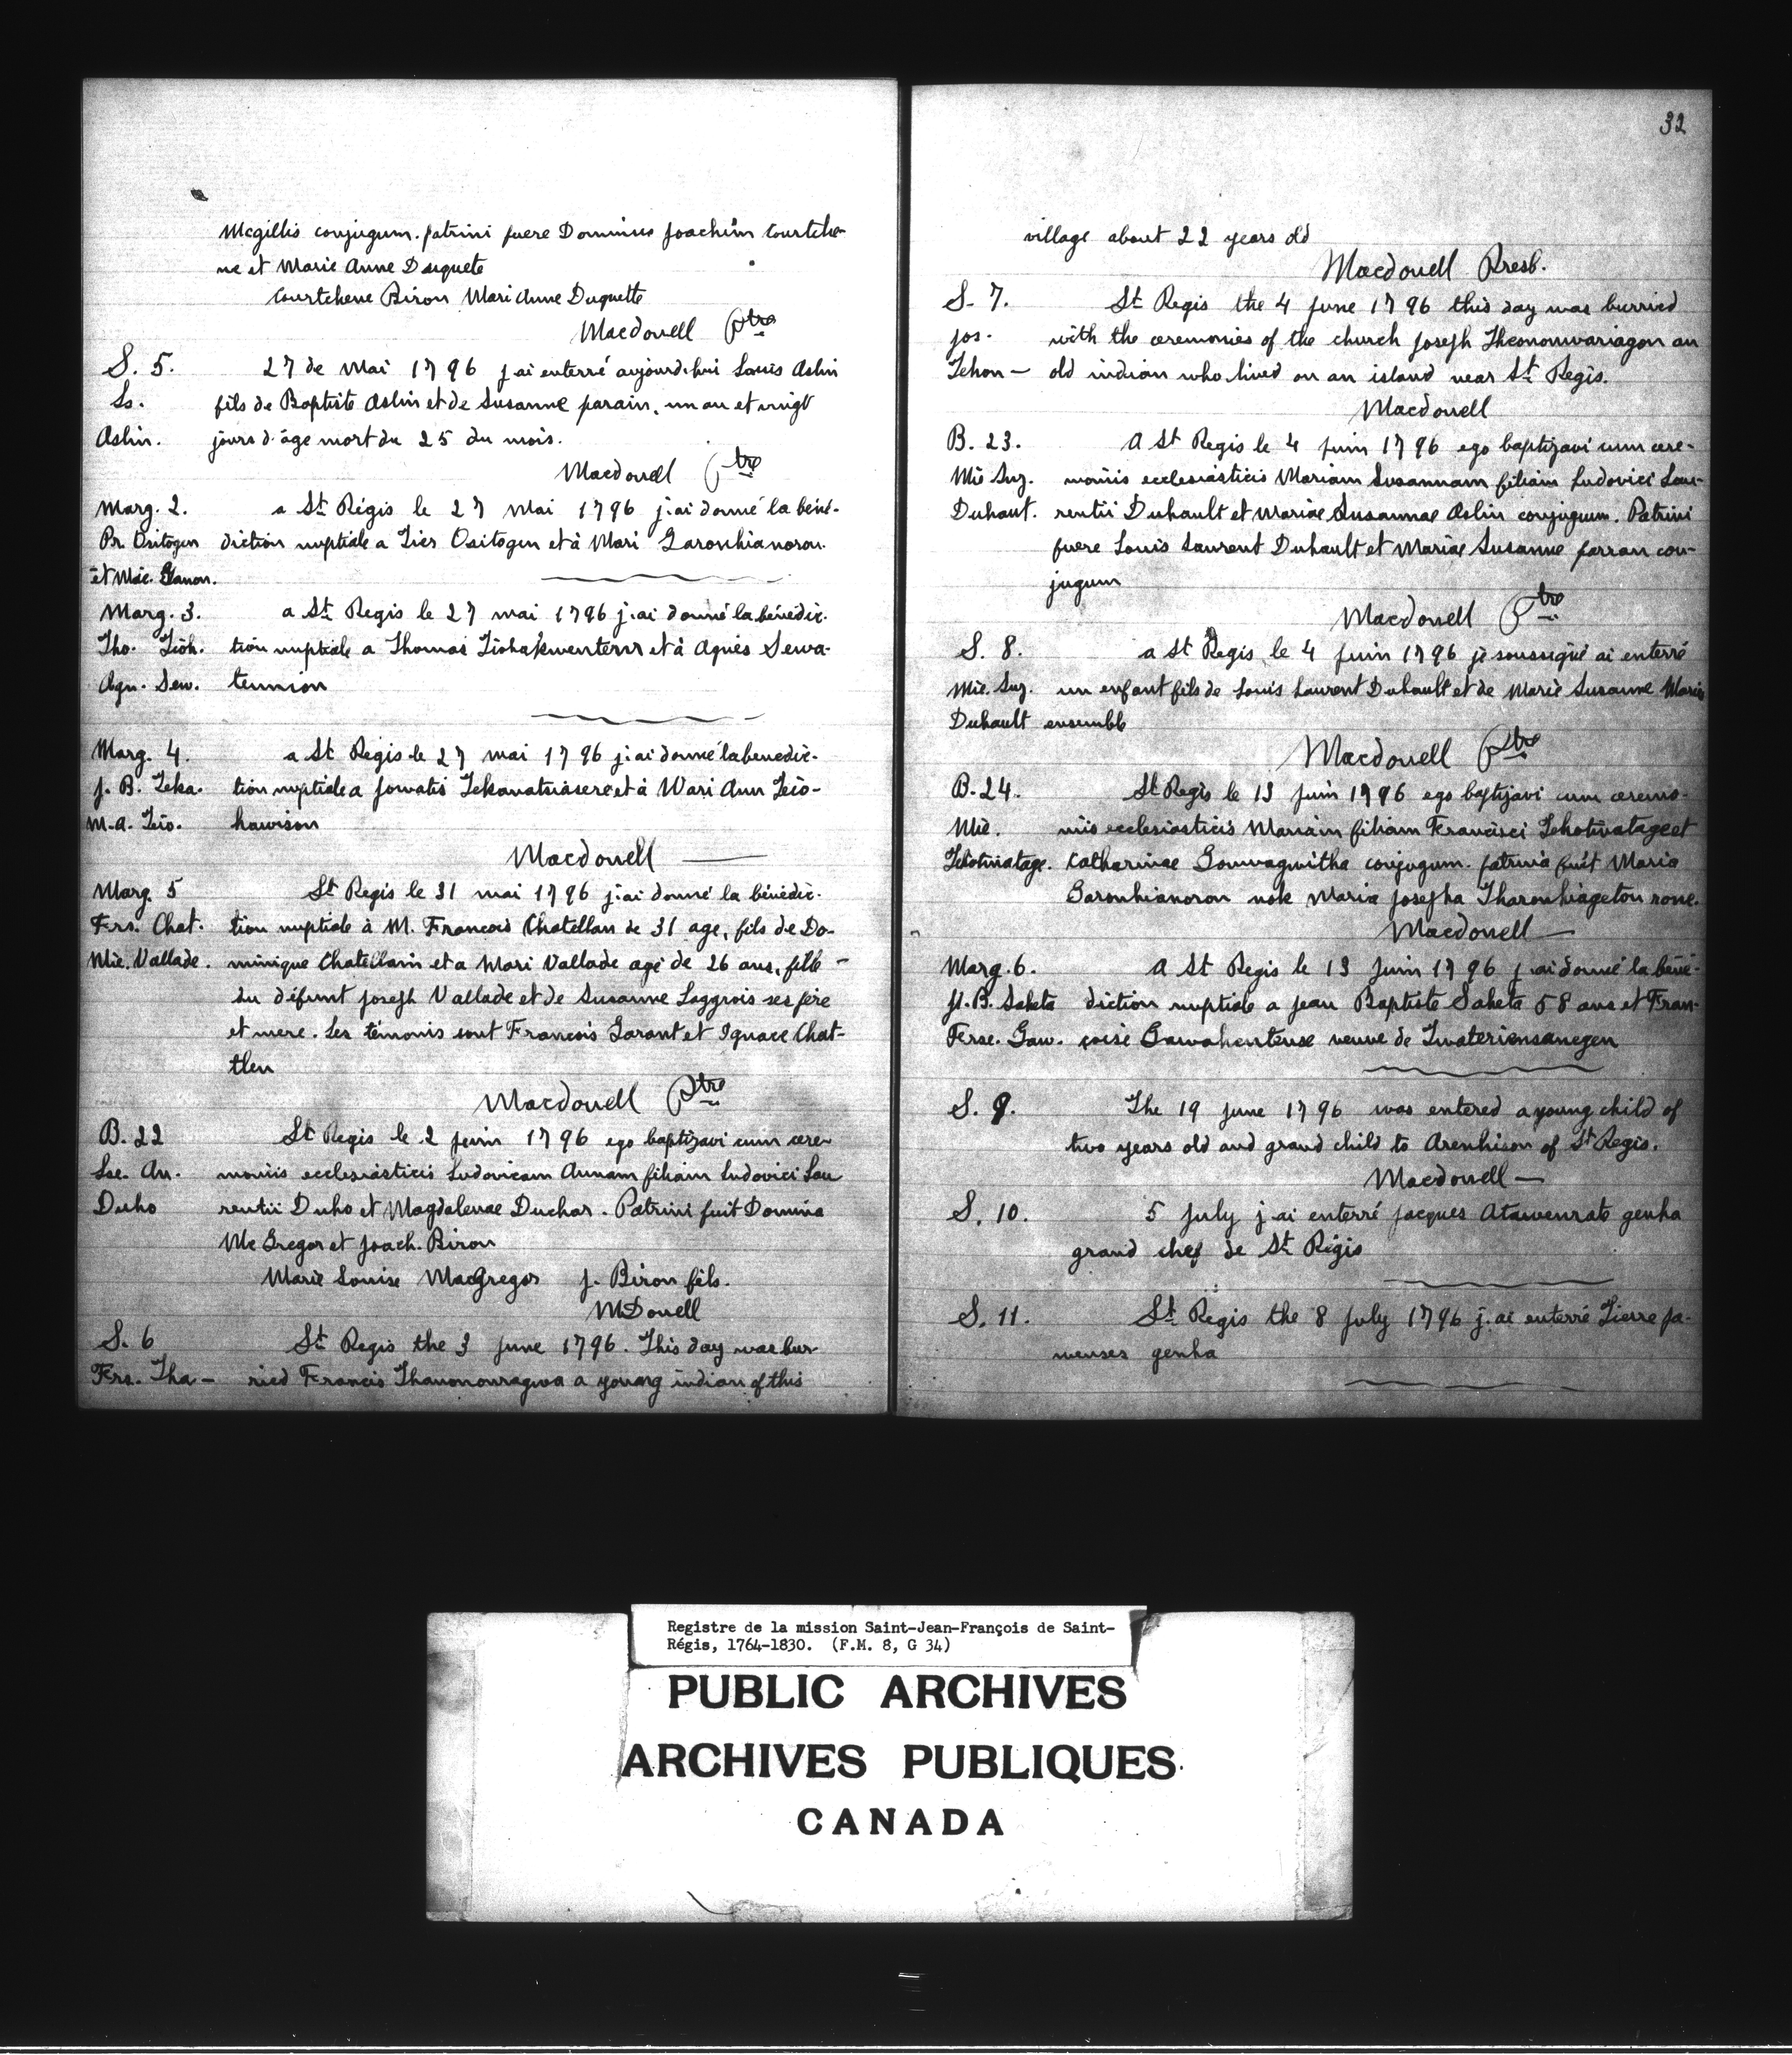 Mcgillis conjugum. patrini fuere Dominus Joachim Courtche-
ne et Marie Anne Duquete
Courtchene Biron Mari Anne Duquette
Macdonell Ptre
S. 5. 27 de Mai 1796 j'ai enterré aujourd'hui Louis Aslin
Ls. fils de Baptiste Aslin et de Susanne parain, un an et vingt
Aslin. jours d'âge mort du 25 du mois.
Macdonell Ptre
Marg. 2. a St Régis le 27 Mai 1796 j'ai donné la béné-
Pr. Ositogen diction nuptiale a Tier Ositogen et à Mari Garonhianoron.
et Mie. Ganon.
Marg. 3. a St Regis le 27 mai 1796 j'ai donné la bénédic-
Tho. Tioh. tion nuptiale a Thomas et à Agnès Sewa-
Agn. Sew. tennion
Marg. 4. a St Regis le 27 mai 1796 j'ai donné la benedic-
J. B. Teka. tion nuptiale a Sowatis et à Wari Ann Teio-
M.-A. Teio. hawison
Macdonell
Marg. 5 St Regis le 31 mai 1796 j'ai donné la bénédic-
Frs. Chat. tion nuptiale à M. Francois Chatellan de 31 age, fils de Do-
Mie. Vallade. minique Chatellain et a Mari Vallade agé de 26 ans, fille
du défunt Joseph Vallade et de Susanne Laggrois ses père
et mere. Les témoins sont François Garant et Ignace Chat-
tlen
Macdonell Ptre
B. 22 St Regis le 2 juin 1796 ego baptizavi cum cere-
Lse. An. moniis ecclesiasticis Ludovicam Annam filiam Ludovici Lau
Duho rentii Duho et Magdalenae Duchar. Patrini fuit Domina
Mc Gregor et Joach. Biron
Marie Louise MacGregor J. Biron fils.
McDonell
S. 6 St Regis the 3 June 1796. This day was bur-
Frs. Tha- ried Francis Thanonouragwa a young indian of this
32
village about 22 years old
Macdonell Presb.
S. 7. St Regis the 4 June 1796 this day was burried
Jos. with the ceremonies of the church Joseph Theonomwariagon an
Tehon- old indian who lived on an island near St Regis.
Macdonell
B. 23. A St Regis le 4 Juin 1796 ego baptizavi cum cere-
Mie Suz. moniis ecclesiasticis Mariam Susannam filiam Ludovici Lau-
Duhaut. rentii Duhault et Mariae Susannae Aslin conjugum. Patrini
fuere Louis Laurent Duhault et Mariae Susanne parran con-
jugum
Macdonell Ptre
S. 8. a St Regis le 4 Juin 1796 je soussigné ai enterré
Mie. Suz. un enfant fils de Louis Laurent Duhault et de Marie Susanne Mariés
Duhault ensemble
Macdonell Ptre
B. 24. St Regis le 13 Juin 1796 ego baptizavi cum ceremo-
Mie. niis ecclesiasticis Mariam filiam Francisci Tehotwatage et
Tehotwatage. Catharinae Gonwagwitha conjugum. patrina fuit Maria
Garonhianoron nok Maria Josepha Tharonhiageton rone.
Macdonell
Marg. 6. A St Regis le 13 Juin 1796 j'ai donné la béné-
Jt. B. Saketa diction nuptiale a Jean Baptiste Saketa 58 ans et Fran-
Ferse. Gaw. çoise Gawahentense veuve de Twateriensanegen
S. 9. The 19 June 1796 was entered a young child of
two years old and grand child to Arenhison of St Regis.
Macdonell
S. 10. 5 July j'ai enterré Jacques Atawenrate genha
grand chef de St Régis
S. 11. St Regis the 8 July 1796 j'ai enterré Tierre Ja-
wenses genha
Registre de la mission Saint-Jean-François de Saint-
Régis, 1764-1830. (F.M. 8, G 34)
PUBLIC ARCHIVES
ARCHIVES PUBLIQUES
CANADA